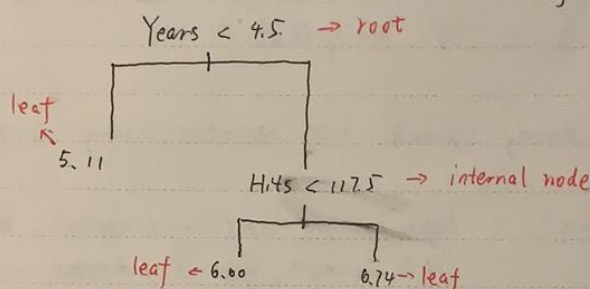 Years < 4.5. → root
leaf
5.11
Hits < 117.5 → internal node
leaf ← 6.00
6.74 → leaf